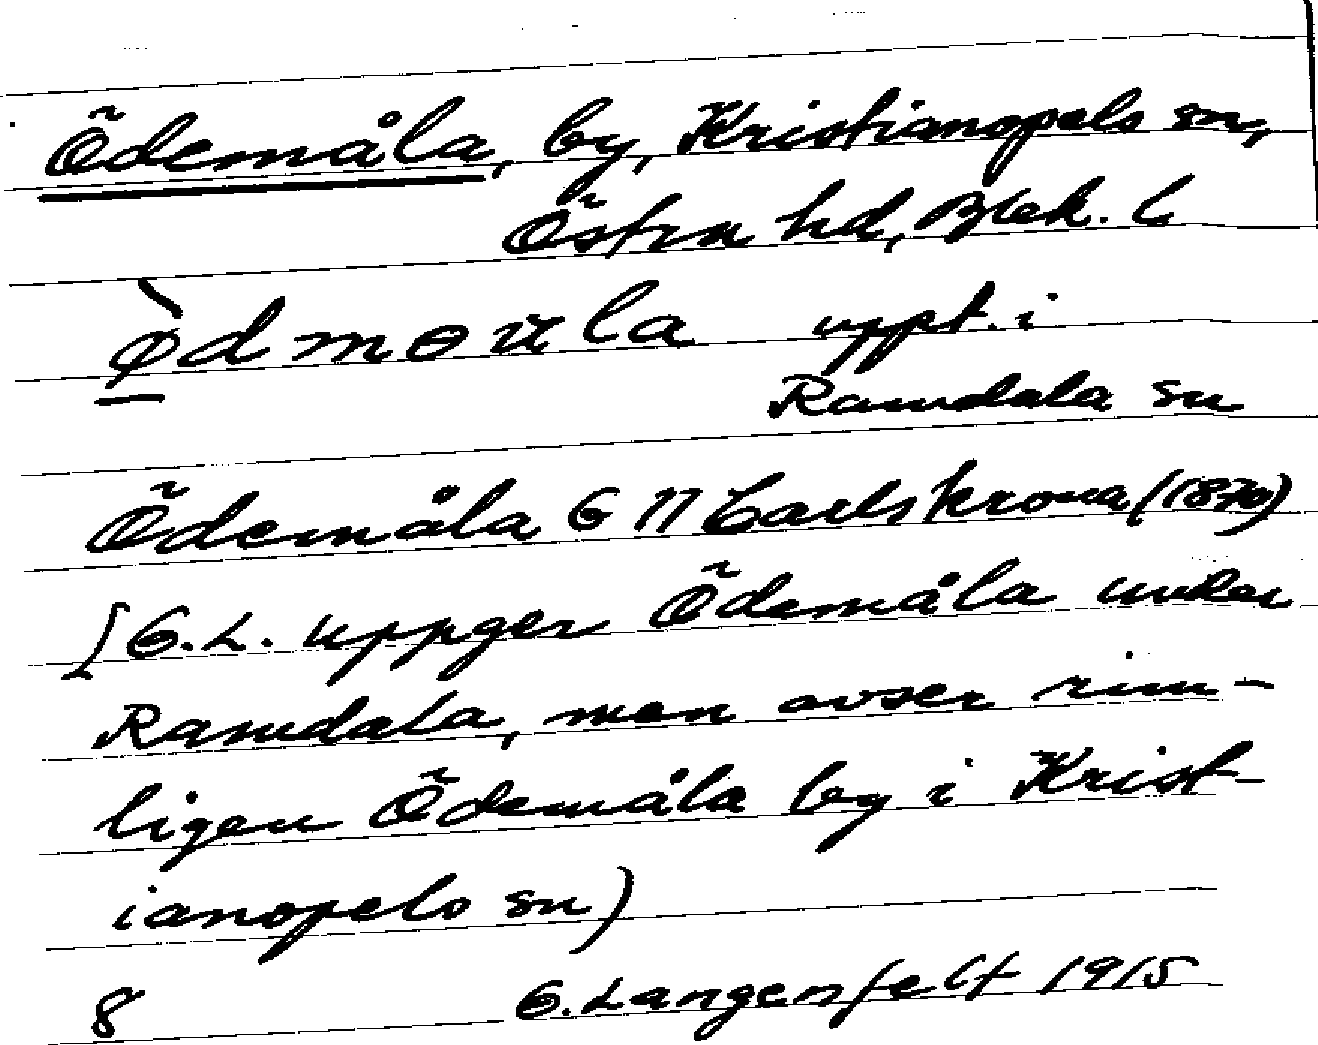 Ödemåla, by, Kristianopels sn,
Östra hd, Blek. l
uppt. i
Ramdala sn
Ödemåla G 11 Carlskrona (1870)
[G.L. uppger Ödemåla under
Ramdala, men avser rim-
ligen Ödemåla by i Krist-
ianopels sn)
8 G. Langenfelt 1915